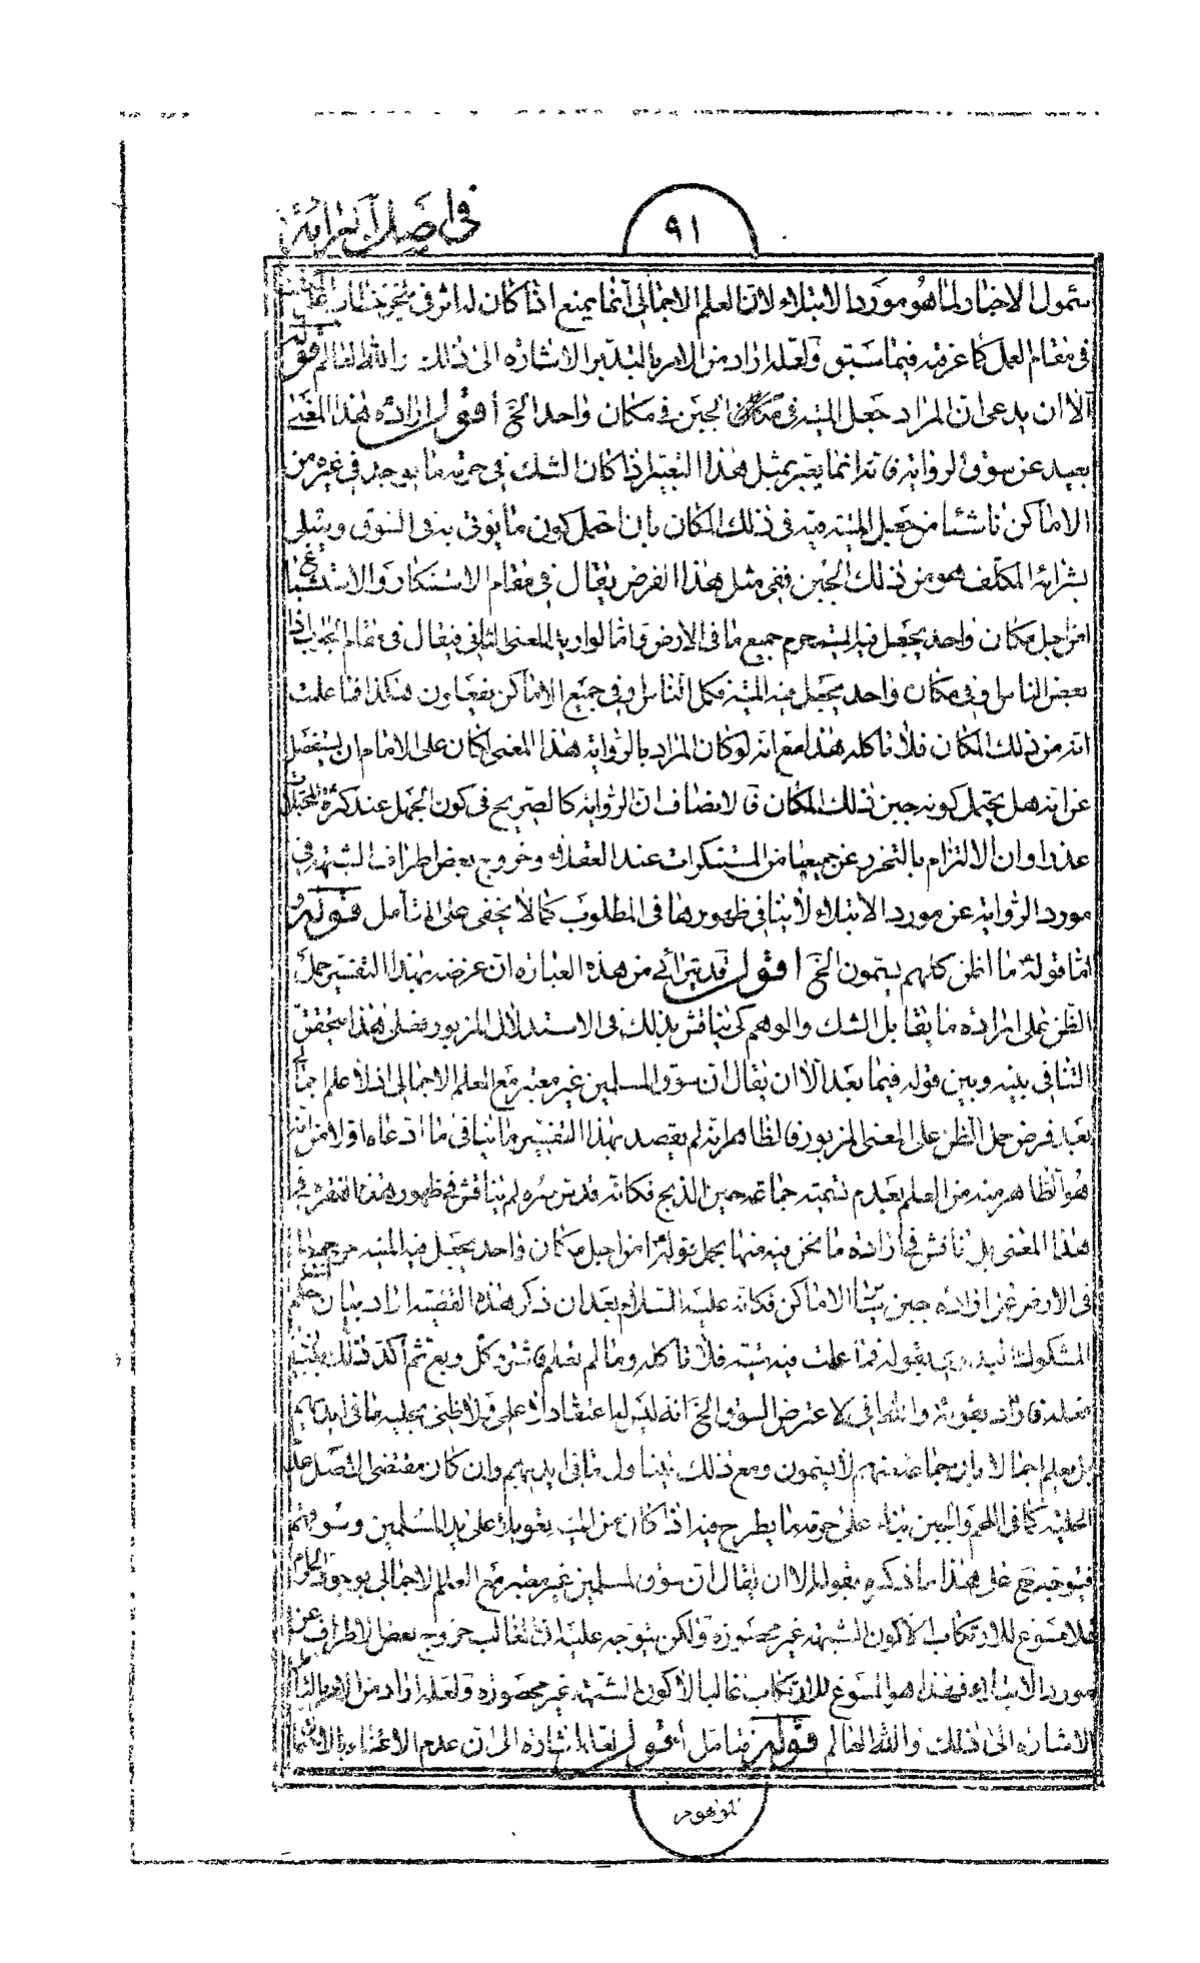 في اصل البرائة
٩١
شمول الاخبار لما هو مورد الابتلاء لان العلم الاجمالي انما يمنع اذا كان له اثر في تنجيز خطاب على
في مقام العمل كما عرفته فيما سبق ولعله اراد من الامر بالتدبر الاشاره الى ذلك والله العالم قوله
الا ان يدعى ان المراد جعل الميتة في الجبن في مكان واحد الخ اقول ارادة هذا المعنى
بعيد عن سوق الرواية فانه انما يعبر بمثل هذا التعبير اذا كان الشك في حرمة ما يوجد في غيره من
الاماكن ناشئا من جعل الميتة فيه في ذلك المكان بان احتمل كون ما يؤتى به في السوق ويبتلى
بشرائه المكلف هو من ذلك الجبن ففي مثل هذا الفرض يقال في مقام الاستنكار والاستبعاد
امن اجل مكان واحد يجعل فيه الميتة حرم جميع ما في الارض واما لو اريد المعنى الثاني فيقال في مقام الجواب اذا
بعض الناس وفي مكان واحد يجعل فيه الميتة فكل الناس وفي جميع الاماكن يفعلون هكذا فما علمت
انه من ذلك المكان فلا تاكله هذا مع انه لو كان المراد بالرواية هذا المعنى لكان على الامام ان يستفصل
عن انه هل يحتمل كونه جبن ذلك المكان فالانصاف ان الرواية كالصريح في كون الجهل عند كثرة المحتملات
عذرا وان الالتزام بالتحرز عن جميعها من المستنكرات عند العقلاء وخروج بعض اطراف الشبهة في
مورد الرواية عن مورد الابتلاء لا ينافي ظهورها في المطلوب كما لا يخفى على المتأمل قوله و
اما قوله ما اظن كلهم يسمون الخ اقول قد يترائى من هذه العبارة ان غرضه بهذا التفسير حمل
الظن على ارادة ما يقابل الشك والوهم كي يناقش بذلك في الاستدلال المزبور فعلى هذا يتحقق
التنافي بينه وبين قوله فيما بعد الا ان يقال ان سوق المسلمين غير معتبر مع العلم الاجمالي اذ لا علم اجمالي
بعد فرض حمل الظن على المعنى المزبور فالظاهر انه لم يقصد بهذا التفسير ما ينافي ما ادعاه اولا من انه
هو الظاهر منه من العلم بعدم تسمية جماعة حين الذبح فكانه قدس سره لم يناقش في ظهور هذه الفقرة في
هذا المعنى بل ناقش في ارادة ما نحن فيه منها بحمل قوله امن اجل مكان واحد يجعل فيه الميتة حرم جميع ما
في الارض غير افراده جبن سائر الاماكن فكانه عليه السلام بعد ان ذكر هذه القضية اراد بيان حكم
المشكوك بقوله فما علمت فيه ميتة فلا تاكله وما لم تعلم فاشتر وكل وبع ثم اكد ذلك
بقوله والله اني لاعترض السوق الخ انه ليس لها اعتقادا علمي ولا ظني بحلية ما في ايديهم
بل يعلم اجمالا بان جماعة منهم لا يسمون ومع ذلك يتناول ما في ايديهم وان كان مقتضى الاصل عدم
الحلية كما في اللحم والجبن بناء على حرمة ما يطرح فيه اذا كان من الميتة تعويلا على يد المسلمين وسوقهم
فيتوجه على هذا ما ذكره بقوله الا ان يقال ان سوق المسلمين غير معتبر مع العلم الاجمالي بوجود الحرام
فلا مسوغ للارتكاب الا كون الشبهة غير محصورة ولكن يتوجه عليه ان الغالب خروج بعض الاطراف عن
مورد الابتلاء فهذا هو المسوغ للارتكاب غالبا لا كون الشبهة غير محصورة ولعله اراد من الامر
الاشارة الى ذلك والله العالم قوله فتامل اقول لعله اشارة الى ان عدم الاعتناء بالاحتمال
الموهوم